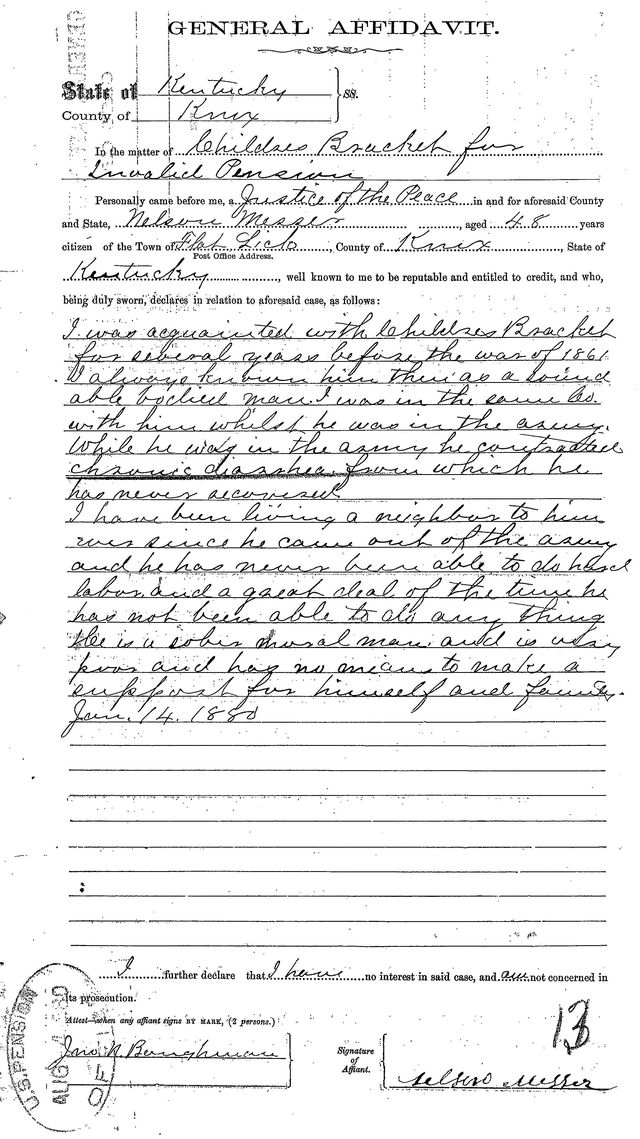 GENERAL AFFIDAVIT.
State of Kentucky
County of Knox } SS.
In the matter of Childres Bracket for
Invalid Pension
Personally came before me, a Justice of the Peace in and for aforesaid County
and State, Nelson Messer, aged 48 years
citizen of the Town of Flat Lick, County of Knox, State of
Post Office Address.
Kentucky, well known to me to be reputable and entitled to credit, and who,
being duly sworn, declares in relation to aforesaid case, as follows:
I was acquainted with Childres Bracket
for several years before the war of 1861
I always known him then as a sound
able bodied man. I was in the same Co.
with him whilst he was in the army.
While he was in the army he contracted
chronic diarrhea from which he
has never recovered
I have been living a neighbor to him
ever since he came out of the army
and he has never been able to do hard
labor and a great deal of the time he
has not been able to do any thing
He is a sober moral man and is very
poor and has no means to make a
support for himself and family.
Jan. 14. 1880
I further declare that I have no interest in said case, and am not concerned in
its prosecution.
Attest when any affiant signs BY MARK, (2 persons.)
Jno. R. Baughman
Signature of Affiant.
Nelson Messer
13
U.S. PENSION
AUG 1880